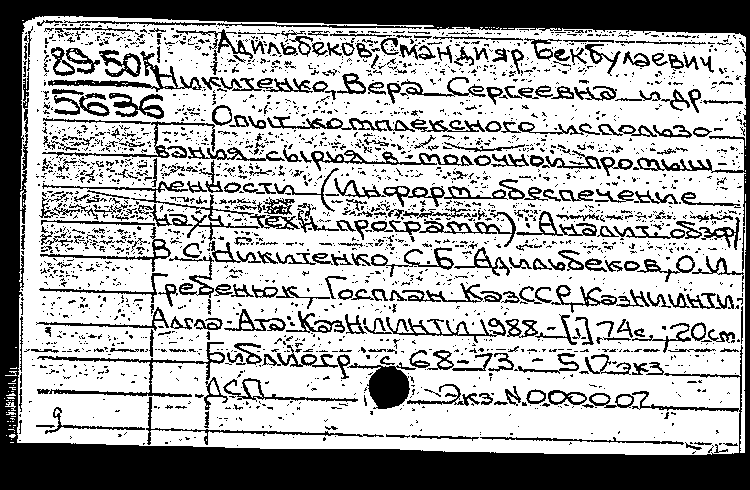 Адильбеков, Смандияр Бекбулаевич
89-50К Никитенко, Вера Сергеевна и др.
5636
Опыт комплексного использо-
вания сырья в молочной промыш-
ленности (Информ. обеспечение
науч. техн. программ): Аналит. обзор/
В.С. Никитенко, С.Б. Адильбеков, О.И.
Гребенюк; Госплан КазССР, КазНИИНТИ.-
Алма-Ата: КазНИИНТИ 1988.- [1], 74с.; 20см.
Библиогр.: с 68-73. - 50 экз
ДСП. Экз. N000007.
9